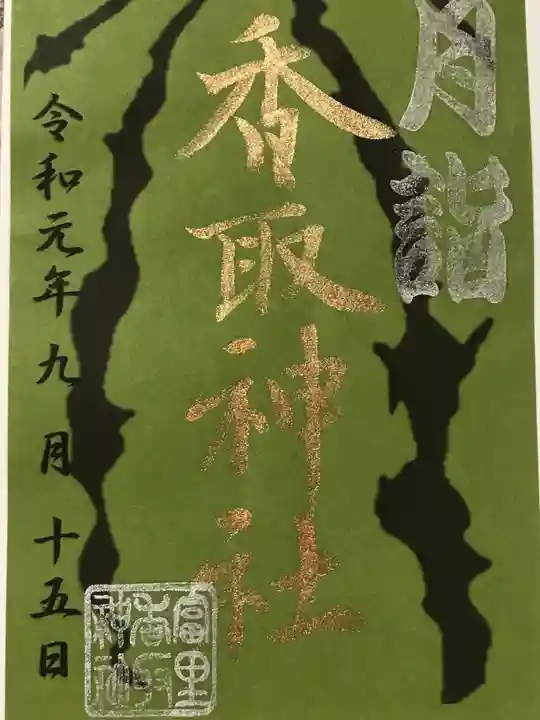 月詣
香取神社
令和元年九月十五日
富里
香取
神社